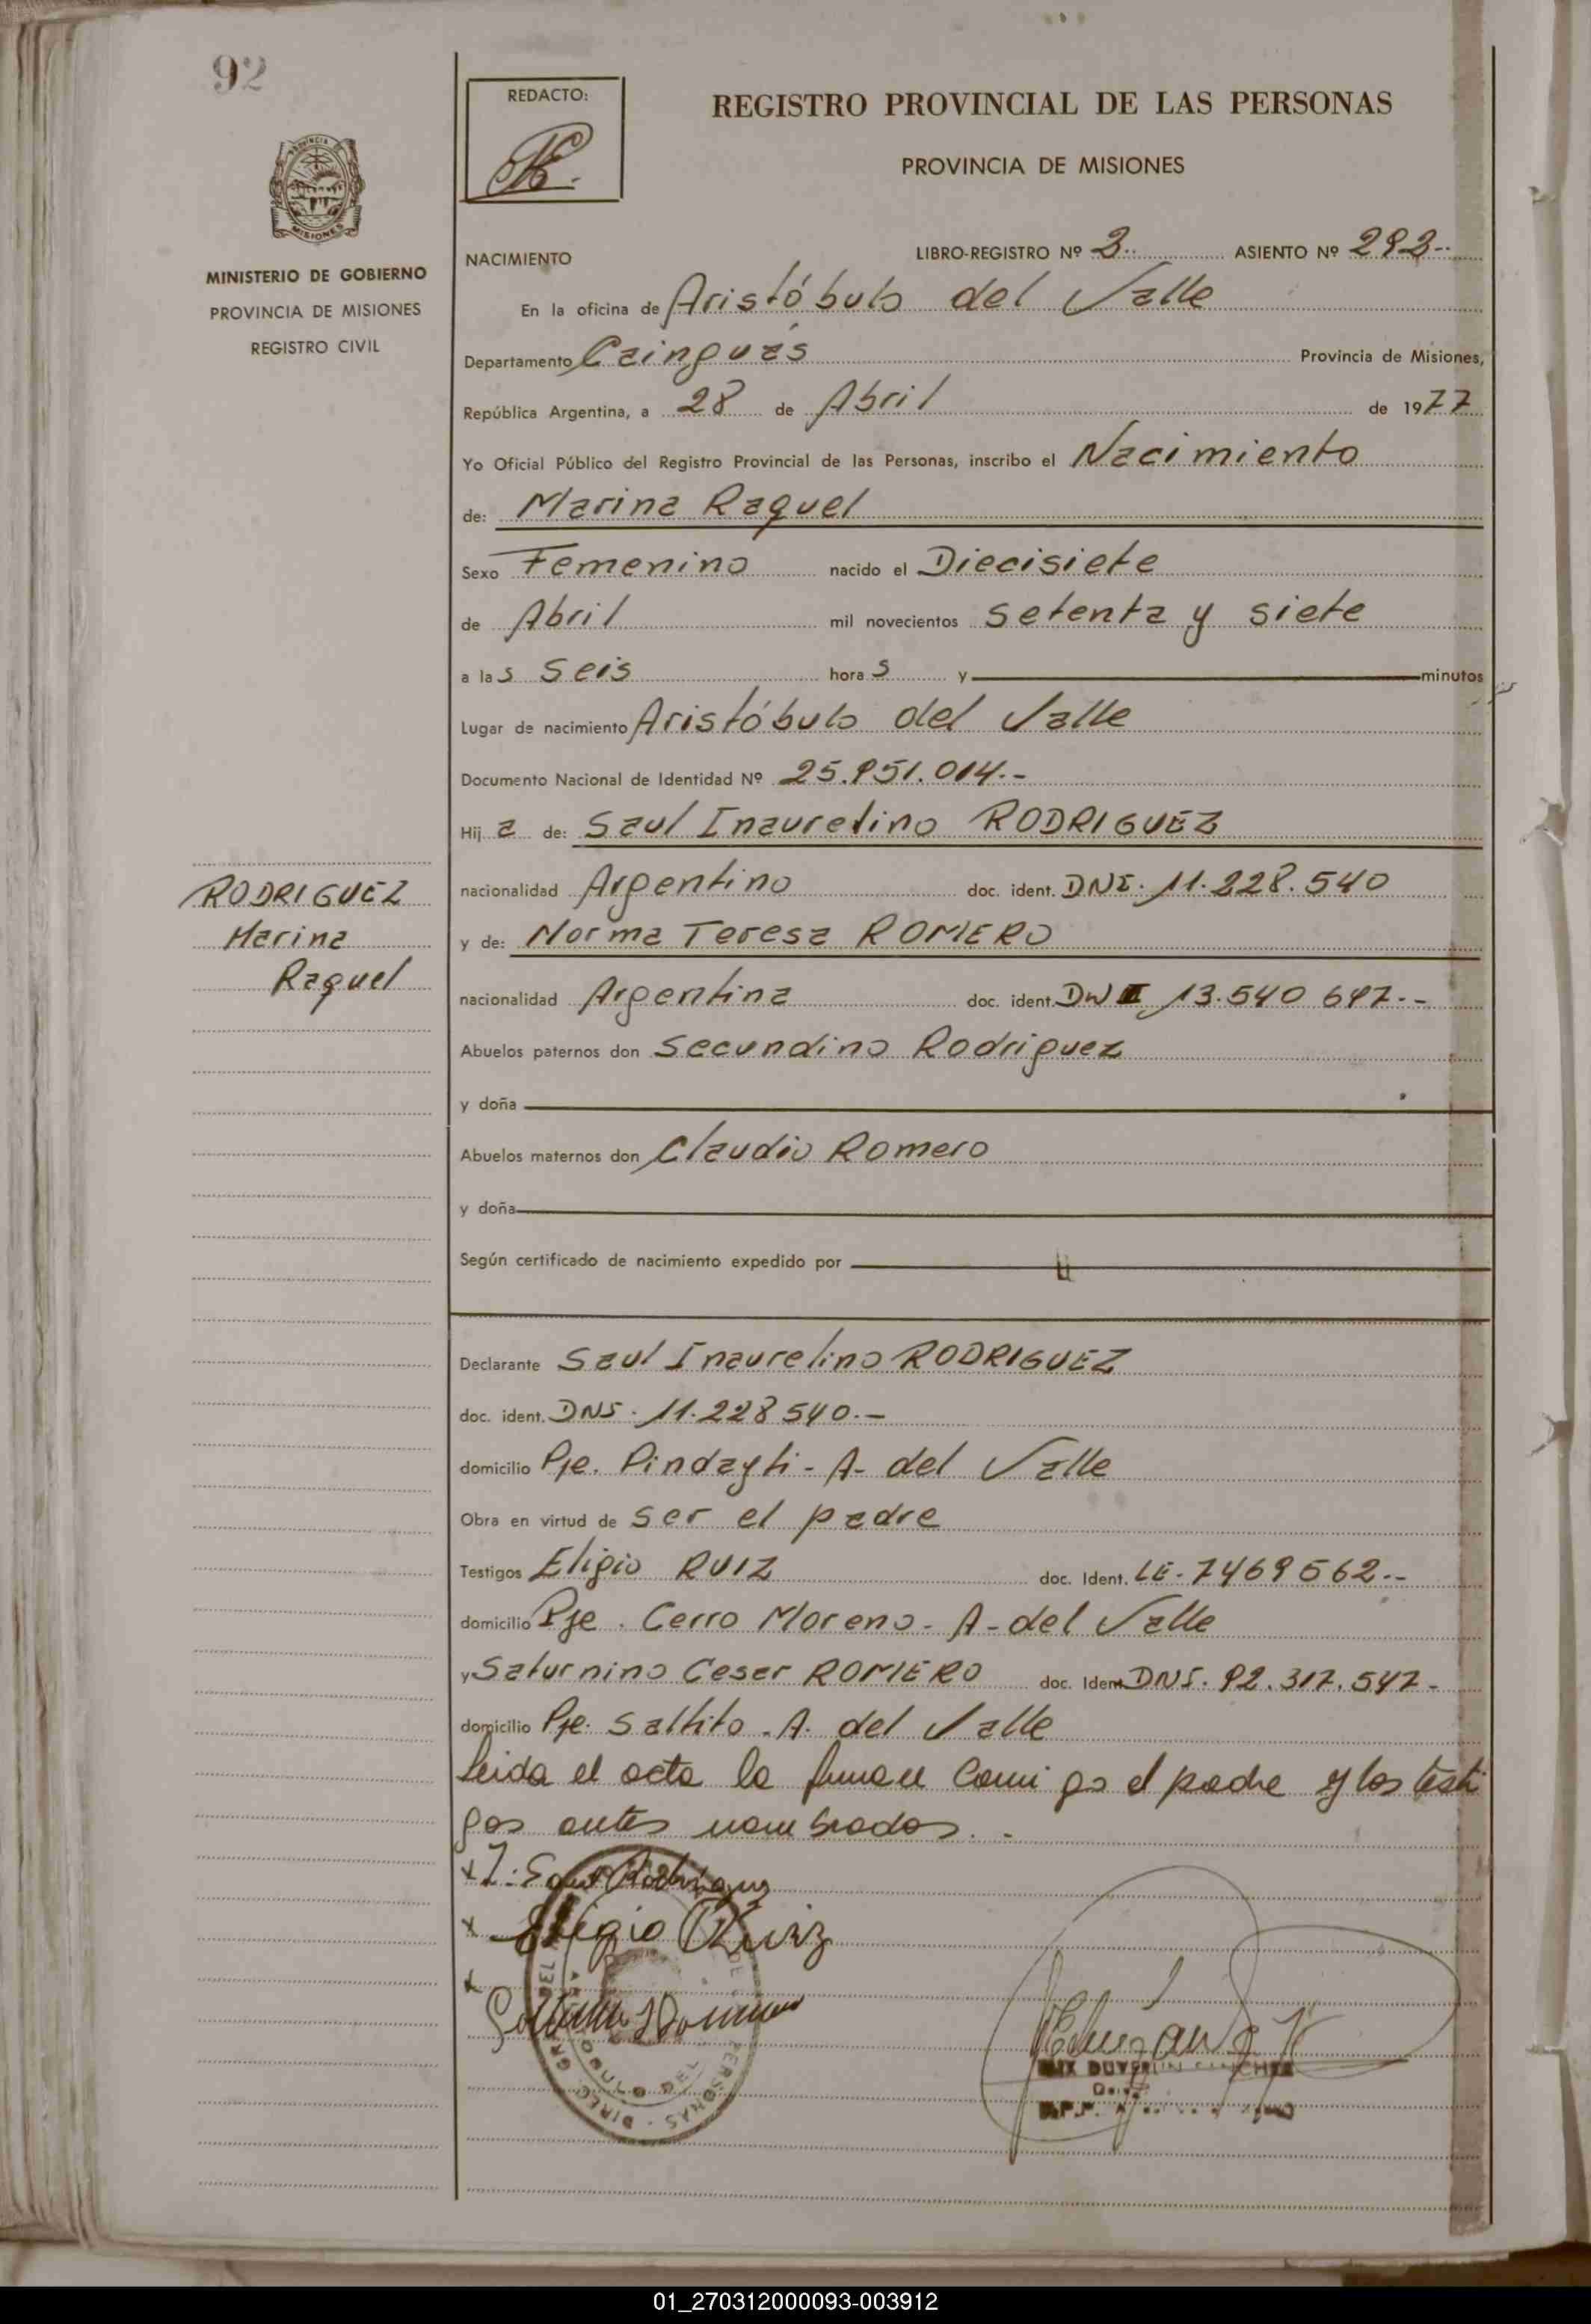 92
REDACTO:
REGISTRO PROVINCIAL DE LAS PERSONAS
PROVINCIA DE MISIONES
PROVINCIA DE
MISIONES
MINISTERIO DE GOBIERNO
PROVINCIA DE MISIONES
REGISTRO CIVIL
NACIMIENTO LIBRO-REGISTRO Nº 3.. ASIENTO Nº 293--
En la oficina de Aristóbulo del Valle
Departamento Cainguás Provincia de Misiones,
República Argentina, a 28 de Abril de 1977
Yo Oficial Público del Registro Provincial de las Personas, inscribo el Nacimiento
de: Marina Raquel
Sexo Femenino nacido el Diecisiete
de Abril mil novecientos setenta y siete
a las seis horas y minutos
Lugar de nacimiento Aristóbulo del Valle
Documento Nacional de Identidad Nº 25.951.014.-
Hija de: Saul Inaurelino RODRIGUEZ
RODRIGUEZ
Marina
Raquel
nacionalidad Argentino doc. ident. DNI. 11.228.540
y de: Norma Teresa ROMERO
nacionalidad Argentina doc. ident. 13.540 697.--
Abuelos paternos don Secundino Rodriguez
y doña
Abuelos maternos don Claudio Romero
y doña
Según certificado de nacimiento expedido por
Declarante Saul Inaurelino RODRIGUEZ
doc. ident. DNI. 11.228 540.-
domicilio Pje. Pindayti - A- del Valle
Obra en virtud de ser el padre
Testigos Eligio RUIZ doc. Ident. LE- 7469562.--
domicilio Pje. Cerro Moreno - A - del Valle
y Saturnino Cesar ROMERO doc. Ident DNI. 92.317.547-
domicilio Pje. Saltito - A. del Valle
Leida el acta la firman conmigo el padre y los testi
gos antes nombrados. -
x I. Saul Rodriguez
x Eligio Ruiz
x
PERSONAS - DIREC. GRAL DEL
01_270312000093-003912